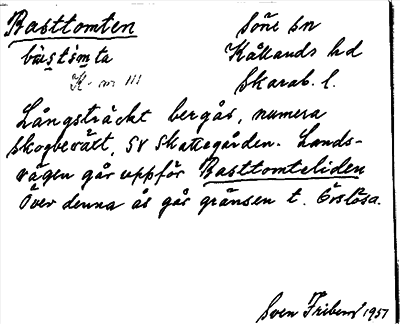 Basttomten Söne sn
bas̲tom̲ta Kållands hd
K. nr III Skarab. l.
Långsträckt bergås, numera
skogbevätt, SV Skattegården. Lands-
vägen går uppför Basttomteliden
Över denna ås går gränsen t. Örslösa.
Sven Friberg 1951